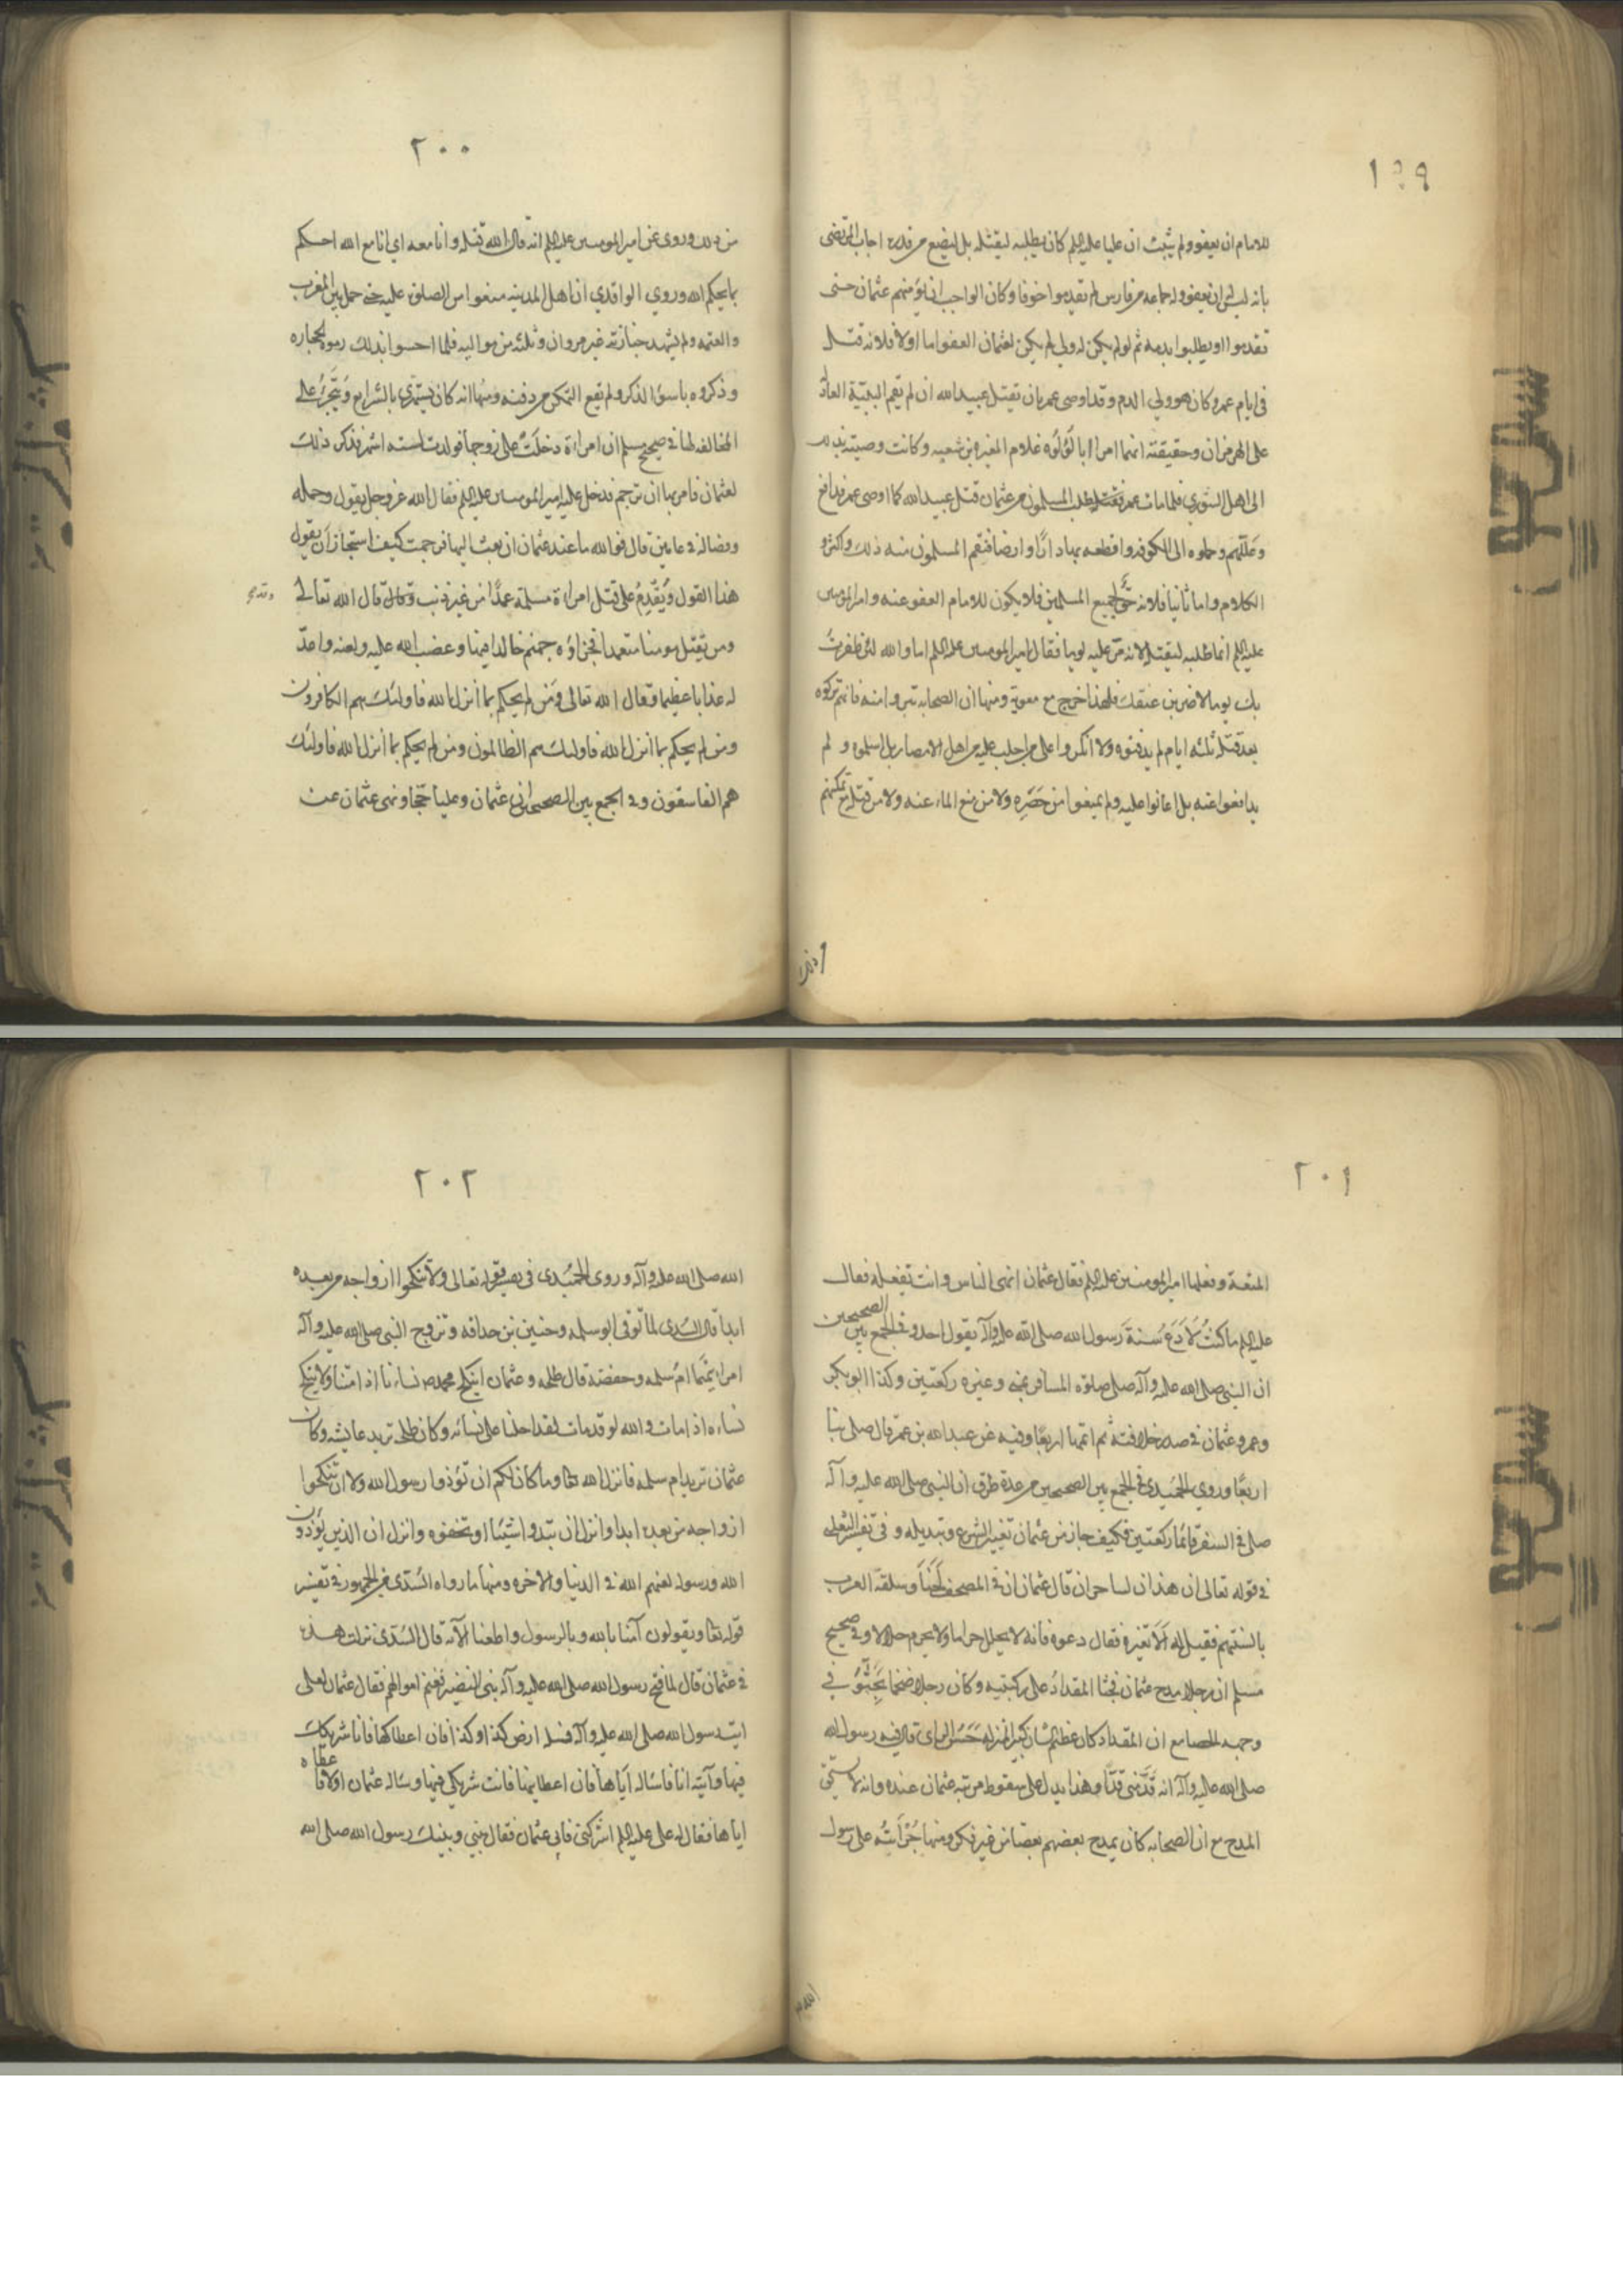 ١٩٩
للامام ان يعفو ولم يثبت ان عليا عليه السلم كان يطلبه ليقتله بل ليضع من قدره اجاب المرتضى
بانه ليس ان يعفو وله جماعه من فارس لم يقدموا خوفا وكان الواجب ان يؤمنهم عثمان حتى
يقدموا او يطلبوا بدمه ثم لو لم يكن له ولي لم يكن لعثمان العفو اما اولا فلانه قتل
في ايام عمر وكان هو ولي الدم وقد اوصى عمر بان يقتل عبيد الله ان لم يقم البينة العادلة
على الهرمزان وحقيقته انهما امرا ابا لؤلؤه غلام المغيره بن شعبه وكانت وصيته بذلك
الى اهل الشورى فلما مات عمر طلب المسلمون من عثمان قتل عبيد الله كما اوصى عمر فدافع
وعللهم وحملوه الى الكوفه واقطعه بها دارا وارضا فنقم المسلمون منه ذلك واكثروا
الكلام واما ثانيا فلانه حق لجميع المسلمين فلا يكون للامام العفو عنه وامير المومنين
عليه السلم انما طلبه ليقتله لانه مر عليه يوما فقال امير المومنين عليه السلم اما والله لئن ظفرت
بك يوما لاضربن عنقك فلهذا خرج مع معوية ومنها ان الصحابه تبروا منه فانهم تركوه
بعد قتله ثلثه ايام لم يدفنوه ولا انكروا على من اجلب عليه من اهل الامصار بل اسلموه ولم
يدافعوا عنه بل اعانوا عليه ولم يمنعوا من حصره ولا من منع الماء عنه ولا من قتله مع تمكنهم
٢٠٠
من ذلك وروى عن امير المومنين عليه السلم انه قال الله قتله وانا معه اي انا مع الله احكم
بما يحكم الله وروي الواقدي ان اهل المدينه منعوا من الصلوة عليه حتى حمل بين المغرب
والعتمه ولم يشهد جنازته غير مروان وثلثه من مواليه فلما احسوا بذلك رموه بالحجاره
وذكروه باسوأ الذكر ولم يقع التمكن من دفنه ومنها انه كان يستهزئ بالشرايع ويتجرئ على
المخالفه لها في صحيح مسلم ان امراة دخلت على زوجها فولدت لسته اشهر فذكر ذلك
لعثمان فامر بها ان ترجم فدخل عليه امير المومنين عليه السلم فقال الله عز وجل يقول وحمله
وفصاله في عامين قال فوالله ما عند عثمان ان بعث اليها فرجمت كيف استجاز ان يقول
هذا القول ويقدم على قتل امراة مسلمة عمدا من غير ذنب وقال الله تعالى
ومن يقتل مومنا متعمدا فجزاؤه جهنم خالدا فيها وغضب الله عليه ولعنه واعد
له عذابا عظيما وقال الله تعالى ومن لم يحكم بما انزل الله فاولئك هم الكافرون
ومن لم يحكم بما انزل الله فاولئك هم الظالمون ومن لم يحكم بما انزل الله فاولئك
هم الفاسقون وفي الجمع بين الصحيحين ان عثمان وعليا حجا ونهى عثمان عن
٢٠١
المتعة وفعلها امير المومنين عليه السلم فقال عثمان انهى الناس وانت تفعله فقال
عليه السلم ما كنت لادع سنة رسول الله صلى الله عليه وآله بقول احد وفي الجمع بين الصحيحين
ان النبي صلى الله عليه وآله صلى صلوة المسافر بمنى وغيره ركعتين وكذا ابو بكر
وعمر وعثمان في صدر خلافته ثم اتمها اربعا وفيه عن عبد الله بن عمر قال صلى بنا
اربعا وروي الحميدي في الجمع بين الصحيحين من عدة طرق ان النبي صلى الله عليه وآله
صلى في السفر دائما ركعتين فكيف جاز من عثمان تغيير الشرع وتبديله وفي تفسير الثعلبي
في قوله تعالى ان هذان لساحران قال عثمان ان في المصحف لحنا وستقيمه العرب
بالسنتهم فقيل له الا تغيره فقال دعوه فانه لا يحلل حراما ولا يحرم حلالا وفي صحيح
مسلم ان رجلا مدح عثمان فجثا المقداد على ركبتيه وكان رجلا ضخما يحثو في
وجهه الحصا مع ان المقداد كان عظيم الشان كبير المنزله حسن الراي قال فيه رسول الله
صلى الله عليه وآله انه قدني قدا وهذا يدل على سقوط مرتبه عثمان عنده وانه لا يستحق
المدح مع ان الصحابه كان يمدح بعضهم بعضا من غير نكر ومنها جرأته على رسول
٢٠٢
الله صلى الله عليه وآله وروى الحميدي في تفسير قوله تعالى ولا تنكحوا ازواجه من بعده
ابدا قال السدي لما توفى ابو سلمه وخنيس بن حذافه وتزوج النبي صلى الله عليه وآله
امراتيهما ام سلمه وحفصة قال طلحه وعثمان اينكح محمد نساءنا اذا متنا ولا ننكح
نساءه اذا مات والله لو قد مات لقد اجلنا على نسائه وكان طلحه يريد عايشه وكان
عثمان يريد ام سلمه فانزل الله تعالى وما كان لكم ان تؤذوا رسول الله ولا ان تنكحوا
ازواجه من بعده ابدا وانزل ان تبدوا شيئا او تخفوه وانزل ان الذين يؤذون
الله ورسوله لعنهم الله في الدنيا والاخره ومنها ما رواه السدي من الجمهور في تفسير
قوله تعالى ويقولون آمنا بالله وبالرسول واطعنا الآيه قال السدي نزلت هذه
في عثمان قال لما فتح رسول الله صلى الله عليه وآله بني النضير فغنم اموالهم فقال عثمان لعلى
ايت رسول الله صلى الله عليه وآله فسله ارض كذا وكذا فان اعطاكها فانا شريكك
فيها وآتيه انا فاساله اياها فان اعطانيها فانت شريكي فيها وساله عثمان اولا فاعطاه
اياها فقال له على عليه السلم اشركني فابى عثمان فقال بيني وبينك رسول الله صلى الله